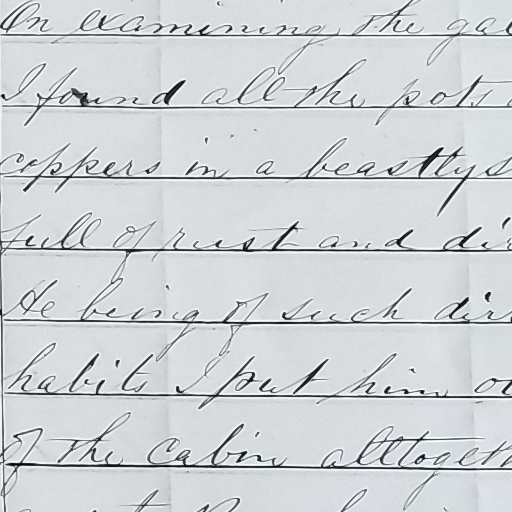 On examining the gal
I found all the pots
coppers in a beastly s
full of rust and dir
He being of such dir
habits I put him ou
of the cabin alltogeth